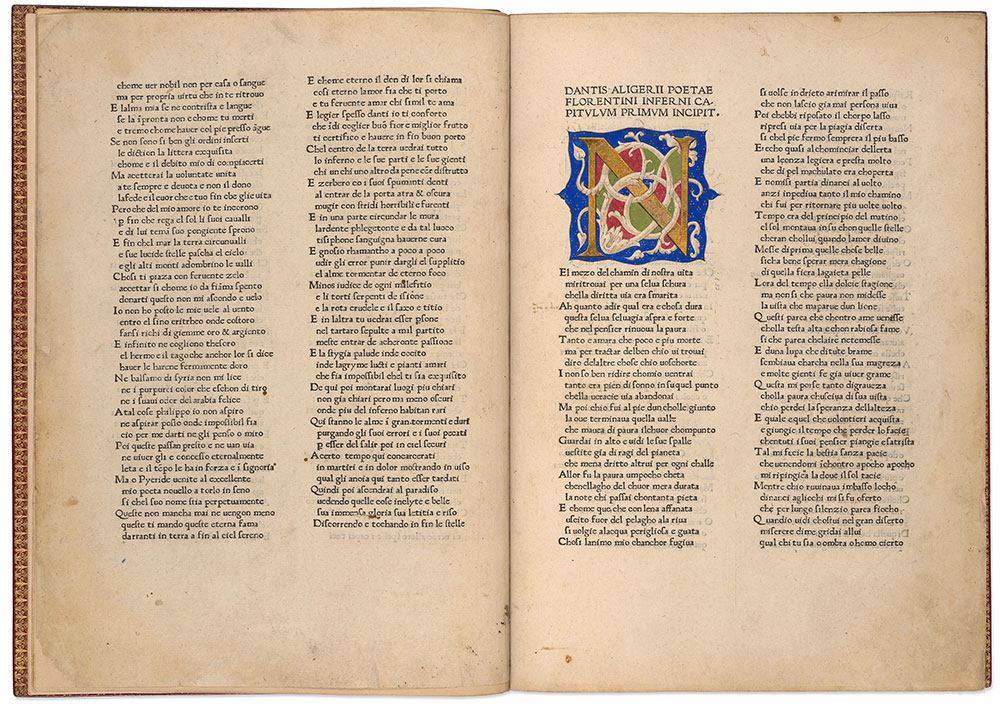 chome uer nobil non per casa o sangue
ma per propria uirtu che in te ritrouo
E lalma mia se ne contrista e langue
se la i pronta non e chome tu merti
e tremo chome hauer col pie presso āgue
Se non sono si ben gli ordini inserti
le diction la littera exquisita
chome e il debito mio di compiacerti
Ma accetterai la uoluntate unita
a te sempre e deuota e non il dono
la fede il cuor che tuo fin che gliè uita
Pero che del mio amore io te incorono
p fin che rega el sol li suoi caualli
e di lui temā suo pongiente sprono
E fin chel mar la terra circunualli
e sue lucide stelle pascha el cielo
e gli alti monti adombrino le ualli
Chosi ti piaza con feruente zelo
accettar si chome io da fiima spento
donarti questo non mi ascondo e uelo
Io non ho posto le mie uele al uento
entro el sino eritrheo onde costoro
farsi richi di giemme oro & argiento
E infinito ne cogliono thesoro
el herme e il tago che anchor lor si dice
hauer le harene fermamente doro
Ne balsamo di syria non mi lice
ne i purpurei color che eschon di tiro
ne i suaui odor del arabia felice
A tal cose philippo io non aspiro
ne aspirar posso onde impossibil fra
cio per me darti ne gli penso o miro
Poi queste passan presto e ne uan uia
ne uiuer gli e concesso eternalmente
leta e il tēpo le ha in forza e ī signoria
Ma o Pyeride uenite al excellente
mio poeta nouello a torlo in seno
si chel suo nome stia perpetuamente
Queste non mancha mai ne uengon meno
queste ti mando queste eterna fama
darranti in terra a fin al ciel sereno
E chome eterno il don di lor si chiama
cosi etterno lamor fra che ti porto
e tu feruente amar chi simil te ama
E legier spesso danti io ti conforto
che īdi coglier buō fior e miglior frutto
ti certifico e hauere in fin buon porto
Chel centro de la terra uedrai tutto
lo inferno e le sue parti e le sue gienti
chi un chi uno altro da pene eēr distrutto
E zerbero co i suoi spumanti denti
al entrar de la porta atra & oscura
mugir con stridi horribili e furenti
E in una parte circundar le mura
lardente phlegetonte e da tal luoco
tisiphone sanguigna hauerne cura
E gnosio rhamantho a poco a poco
udir gli error punir dargli el supplitio
el alme tormentar de eterno foco
Minos iudice de ogni malefitio
e li torti serpenti de issione
e la rota crudele e il saxo e titio
E in laltra tu uedras esser psone
nel tartaro sepulte a mal partito
meste entrar de acheronte passione
E la stygia palude inde cocito
inde lagryme lucti e pianti amari
che fia impossibil chel ti sia exquisito
De qui poi montarai luogi piu chiari
non gia chiari pero ma meno oscuri
onde piu del inferno habitan rari
Qui stanno le alme ī gran tormenti e duri
purgando gli suoi errori e i suoi pecati
p esser del salir poi in ciel securi
Acerto tempo qui concarcerati
in martiri e in dolor mostrando in uiso
qual gli anoia qui tanto esser tardati
Quindi poi ascendrai al paradiso
uedendo quelle cose inclyte e belle
sua immensa gloria sua letitia e riso
Discorrendo e tochando in fin le stelle
2
DANTIS ALIGERII POETAE
FLORENTINI INFERNI CA-
PITVLVM PRIMVM INCIPIT.
N
El mezo del chamin di nostra uita
mi ritrouai per una selua schura
chella diritta uia era smarita
Ah quanto adir qual era e chosa dura
questa selua seluagia aspra e forte
che nel penser rinuoua la paura
Tanto e amara che poco e piu morte
ma per tractar delben chio ui trouai
diro delaltre chose chio uoschorte
I non so ben ridire chomio uentrai
tanto era pien di sonno in su quel punto
chella ueracie uia abandonai
Ma poi chio fui al pie dun cholle giunto
la oue terminaua quella ualle
che mauea di paura ilchuor chompunto
Guardai in alto e uidi le sue spalle
uestite gia di ragi del pianeta
che mena dritto altrui per ogni challe
Allor fu la paura umpocho cheta
chenellagho del chuor mera durata
la note chi passai chontanta pieta
E chome que che con lena affanata
uscito fuor del pelagho ala riua
si uolgie alacqua perigliosa e guata
Chosi lanimo mio chanchor fugiua
si uolse indrieto arimirar il passo
che non lascio gia mai persona uiua
Poi chebbi riposato il chorpo lasso
ripresi uia per la piagia diserta
si chel pie fermo sempre era il piu basso
Et echo quasi alchominciar dellerta
una leonza legiera e presta molto
che di pel machulato era choperta
E nomisi partia dinanci al uolto
anzi inpediua tanto il mio chamino
chi fui per ritornare piu uolte uolto
Tempo era del principio del matino
el sol montaua in su chon quelle stelle
cheran chollui quando lamor diuino
Messe di prima quelle chose belle
sicha bene sperar mera chagione
di quella fiera lagaieta pelle
Lora del tempo ella dolcie stagione
ma non si che paura non midesse
la uista che maparue dun lione
Questi parea che chontro ame uenesse
cholla testa alta e chon rabiosa fame
si che parea chelaire netemesse
E duna lupa che ditute brame
sembiaua charcha nella sua magreza
e molte gienti fe gia uiuer grame
Questa mi porse tanto digraueza
cholla paura chusciua di sua uista
chio perdei la speranza dellalteza
E quale e quel che uolontieri acquista
e giungie il tempo che perder lo facie
chentuti i suoi pensier piangie e satrista
Tal mi fecie la bestia sanza pacie
che uenendomi ichontro apocho apocho
mi ripingica la doue il sol tacie
Mentre chio ruuinaua imbasso locho
dinanci aglicchi mi si fu oferto
che per lungo silenzio parea fiocho
Quando uidi chostui nel gran diserto
miserere dime gridai allui
qual chi tu sia o ombra o homo cierto